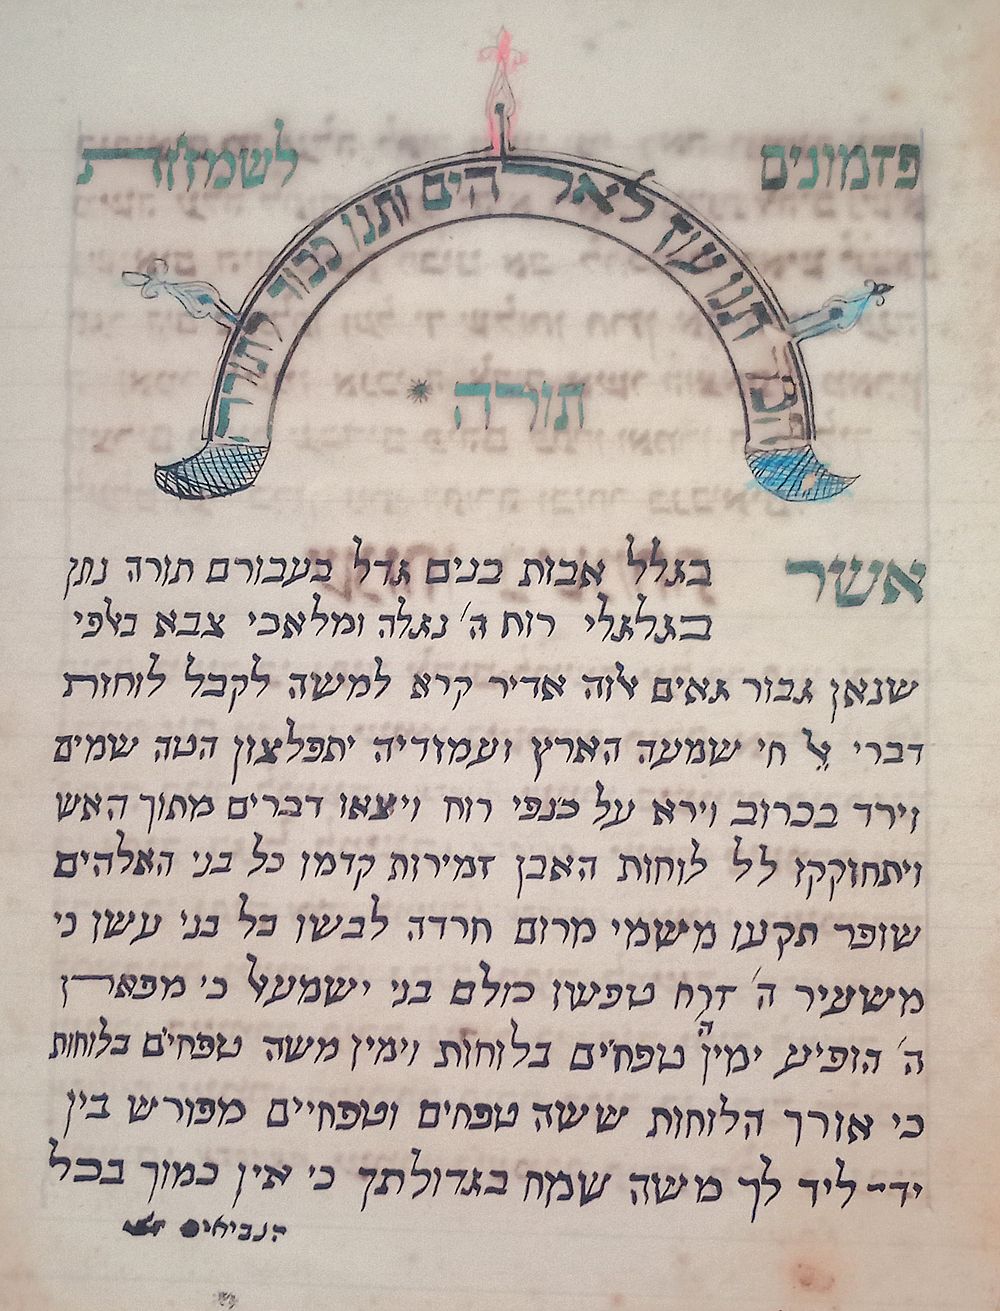 פזמונים לשמחת
הכל תנו עוז לאלהים ותנו כבוד לתורה
תורה
אשר בגלל אבות בנים גדל בעבורם תורה נתן
בגלגלי רוח ה׳ נגלה ומלאכי צבא בצפי
שנאן גבור גאים צוה אדיר קרא למשה לקבל לוחות
דברי אל חי שמעה הארץ ועמודיה יתפלצון הטה שמים
וירד בכרוב וירא על כנפי רוח ויצאו דברים מתוך האש
ויתחוקקו לל לוחות האבן זמירות קדמו כל בני האלהים
שופר תקעו משמי מרום חרדה לבשו כל בני עשו כי
משעיר ה׳ זרח טפשו כולם בני ישמעאל כי מפארן
ה׳ הופיע ימין ה׳ טפחים בלוחות וימין משה טפחים בלוחות
כי אורך הלוחות ששה טפחים וטפחיים מפורש בין
יד ליד לך משה שמח בגדולתך כי אין כמוך בכל
הנביאים